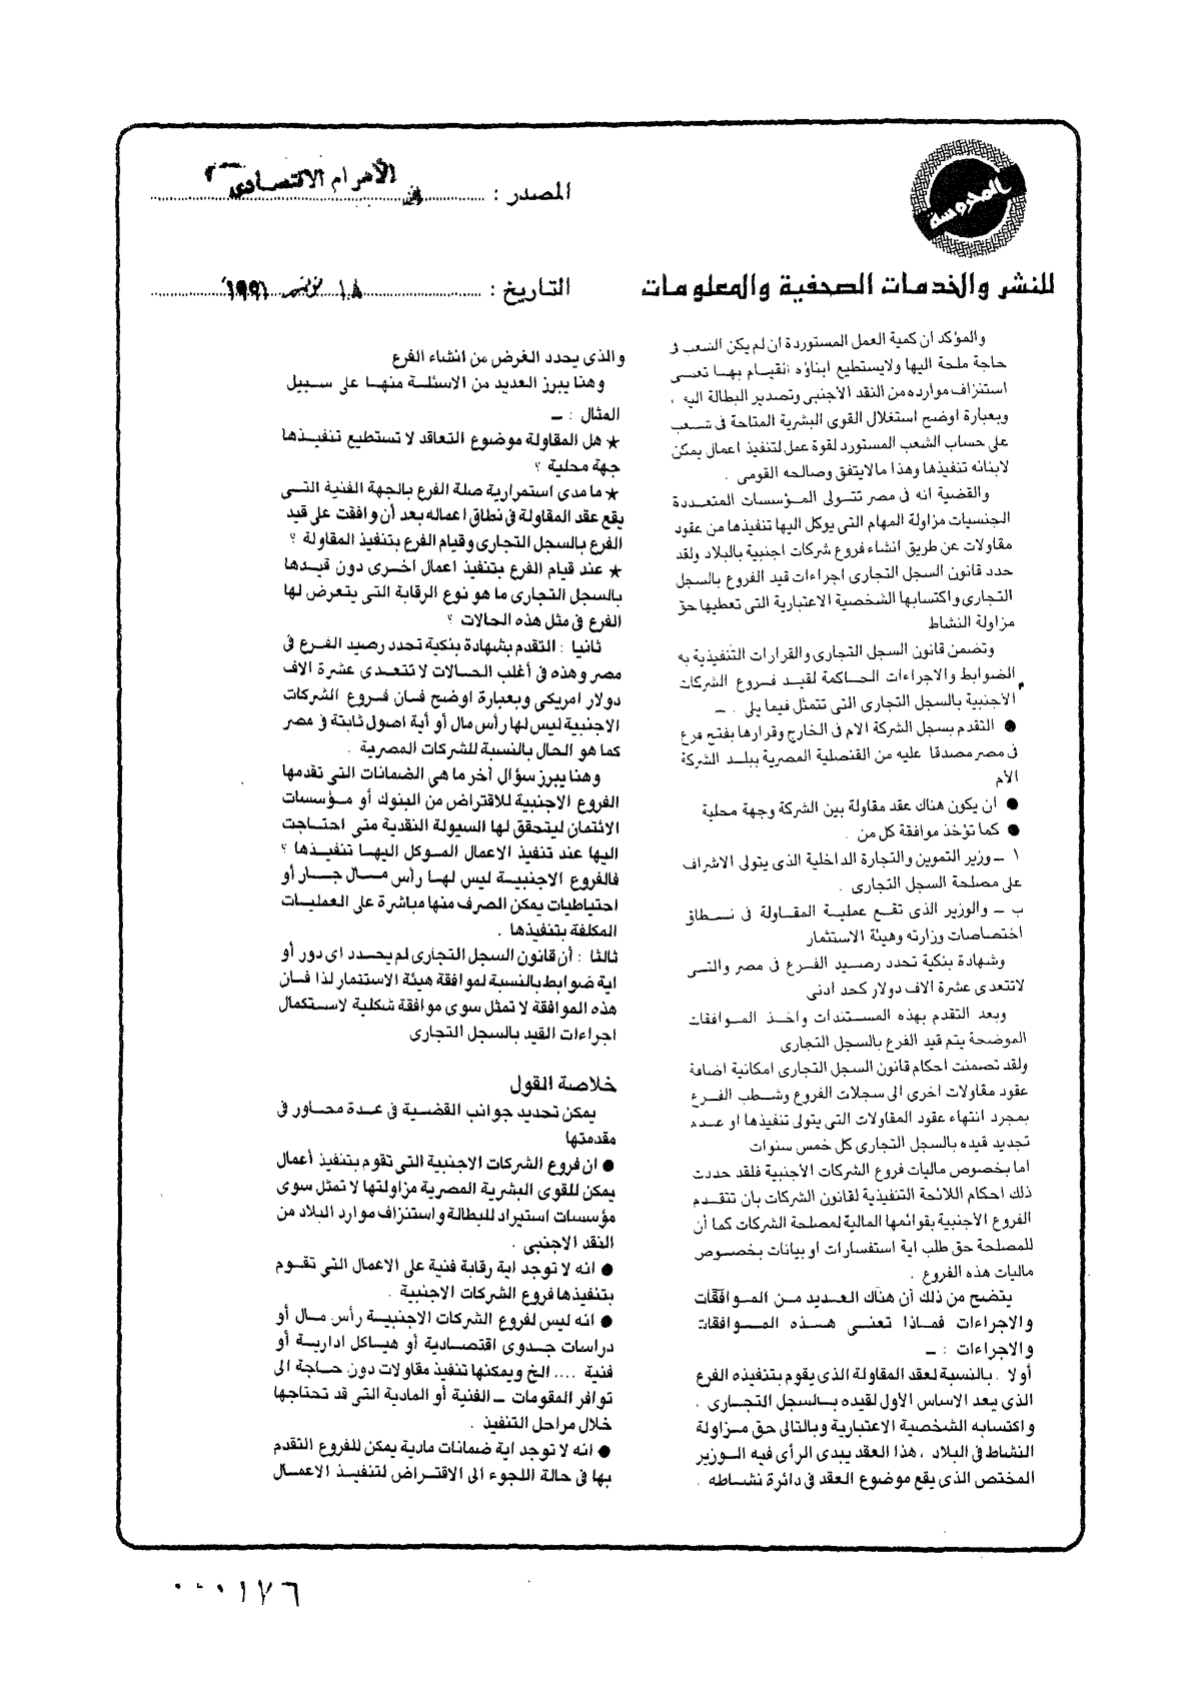 المحروسة
المصدر : الأهرام الاقتصادى
للنشر والخدمات الصحفية والمعلومات
التاريخ : ١٨ نوفمبر ١٩٩١
والمؤكد ان كمية العمل المستوردة ان لم يكن الشعب فى
حاجة ملحة اليها ولايستطيع ابناؤه القيـام بهـا تعنـى
استنزاف موارده من النقد الأجنبى وتصدير البطالة اليه ،
وبعبارة اوضح استغلال القوى البشرية المتاحة فى شـعب
على حساب الشعب المستورد لقوة عمل لتنفيذ اعمال يمكن
لابنائه تنفيذها وهذا مالايتفق وصالحه القومى .
والقضية انه فى مصر تتـولى المـؤسسات المتعـددة
الجنسيات مزاولة المهام التى يوكل اليها تنفيذها من عقود
مقاولات عن طريق انشاء فروع شركات اجنبية بالبلاد ولقد
حدد قانون السجل التجارى اجراءات قيد الفروع بالسجل
التجارى واكتسابها الشخصية الاعتبارية التى تعطيها حق
مزاولة النشاط
وتضمن قانون السجل التجارى والقرارات التنفيذية به
الضوابط والاجراءات الحـاكمة لقيـد فـروع الشركات
الأجنبية بالسجل التجارى التى تتمثل فيما يلى . ــ
● التقدم بسجل الشركة الام فى الخارج وقرارها بفتح فرع
فى مصر مصدقا عليه من القنصلية المصرية ببلـد الشركة
الأم
● ان يكون هناك عقد مقاولة بين الشركة وجهة محلية
● كما تؤخذ موافقة كل من .
١ ــ وزير التموين والتجارة الداخلية الذى يتولى الاشراف
على مصلحة السجل التجارى .
ب ــ والوزير الذى تقـع عمليـة المقـاولة فى نـطاق
اختصاصات وزارته وهيئة الاستثمار
وشهادة بنكية تحدد رصـيد الفـرع فى مصر والتـى
لاتتعدى عشرة الاف دولار كحد ادنى
وبعد التقدم بهذه المسـتندات واخـذ المـوافقات
الموضحة يتم قيد الفرع بالسجل التجارى
ولقد تضمنت احكام قانون السجل التجارى امكانية اضافة
عقود مقاولات اخرى الى سجلات الفروع وشـطب الفـرع
بمجرد انتهاء عقود المقاولات التى يتولى تنفيذها او عـدم
تجديد قيده بالسجل التجارى كل خمس سنوات
اما بخصوص ماليات فروع الشركات الأجنبية فلقد حددت
ذلك احكام اللائحة التنفيذية لقانون الشركات بان تتقـدم
الفروع الأجنبية بقوائمها المالية لمصلحة الشركات كما أن
للمصلحة حق طلب اية استفسارات او بيانات بخصـوص
ماليات هذه الفروع .
يتضح من ذلك أن هناك العـديد مـن المـوافقات
والاجراءات فمـاذا تعنـى هـذه المـوافقات
والاجراءات : ــ
أولا . بالنسبة لعقد المقاولة الذى يقوم بتنفيذه الفرع
الذى يعد الاساس الأول لقيده بـالسجل التجـارى ،
واكتسابه الشخصية الاعتبارية وبالتالى حق مـزاولة
النشاط فى البلاد ، هذا العقد يبدى الرأى فيه الـوزير
المختص الذى يقع موضوع العقد فى دائرة نشـاطه .
والذى يحدد الغرض من انشاء الفرع
وهنا يبرز العديد من الاسئلـة منهـا على سـبيل
المثال : ــ
★ هل المقاولة موضوع التعاقد لا تستطيع تنفيـذها
جهة محلية ؟
★ ما مدى استمرارية صلة الفرع بالجهة الفنية التـى
يقع عقد المقاولة فى نطاق اعماله بعد أن وافقت على قيد
الفرع بالسجل التجارى وقيام الفرع بتنفيذ المقاولة ؟
★ عند قيام الفرع بتنفيذ اعمال اخـرى دون قيـدها
بالسجل التجارى ما هو نوع الرقابة التى يتعرض لها
الفرع فى مثل هذه الحالات ؟
ثانيا : التقدم بشهادة بنكية تحدد رصيد الفـرع فى
مصر وهذه فى أغلب الحـالات لا تتعـدى عشرة الاف
دولار امريكى وبعبارة اوضح فـان فـروع الشركات
الاجنبية ليس لها رأس مال أو أية اصول ثابتة فى مصر
كما هو الحال بالنسبة للشركات المصرية .
وهنا يبرز سؤال أخر ما هى الضمانات التى تقدمها
الفروع الاجنبية للاقتراض من البنوك أو مـؤسسات
الائتمان ليتحقق لها السيولة النقدية متى احتـاجت
اليها عند تنفيذ الاعمال المـوكل اليهـا تنفيـذها ؟
فالفروع الاجنبيـة ليس لهـا رأس مـال جـار أو
احتياطيات يمكن الصرف منها مباشرة على العمليـات
المكلفة بتنفيذها .
ثالثا : أن قانون السجل التجارى لم يحـدد اى دور أو
اية ضوابط بالنسبة لموافقة هيئة الاستثمار لذا فـان
هذه الموافقة لا تمثل سوى موافقة شكلية لاسـتكمال
اجراءات القيد بالسجل التجارى
خلاصة القول
يمكن تحديد جوانب القضـية فى عـدة محـاور فى
مقدمتها
● ان فروع الشركات الاجنبية التى تقوم بتنفيذ أعمال
يمكن للقوى البشرية المصرية مزاولتها لا تمثل سوى
مؤسسات استيراد للبطالة واستنزاف موارد البلاد من
النقد الاجنبى .
● انه لا توجد اية رقابة فنية على الاعمال التى تقـوم
بتنفيذها فروع الشركات الاجنبية .
● انه ليس لفروع الشركات الاجنبيـة رأس مـال أو
دراسات جـدوى اقتصـادية أو هيـاكل اداريـة أو
فنية .... الخ ويمكنها تنفيذ مقاولات دون حـاجة الى
توافر المقومات ــ الفنية أو المادية التى قد تحتاجها
خلال مراحل التنفيذ .
● انه لا توجد اية ضمانات مادية يمكن للفروع التقدم
بها فى حالة اللجوء الى الاقتـراض لتنفيـذ الاعمـال
٠٠٠١٧٦